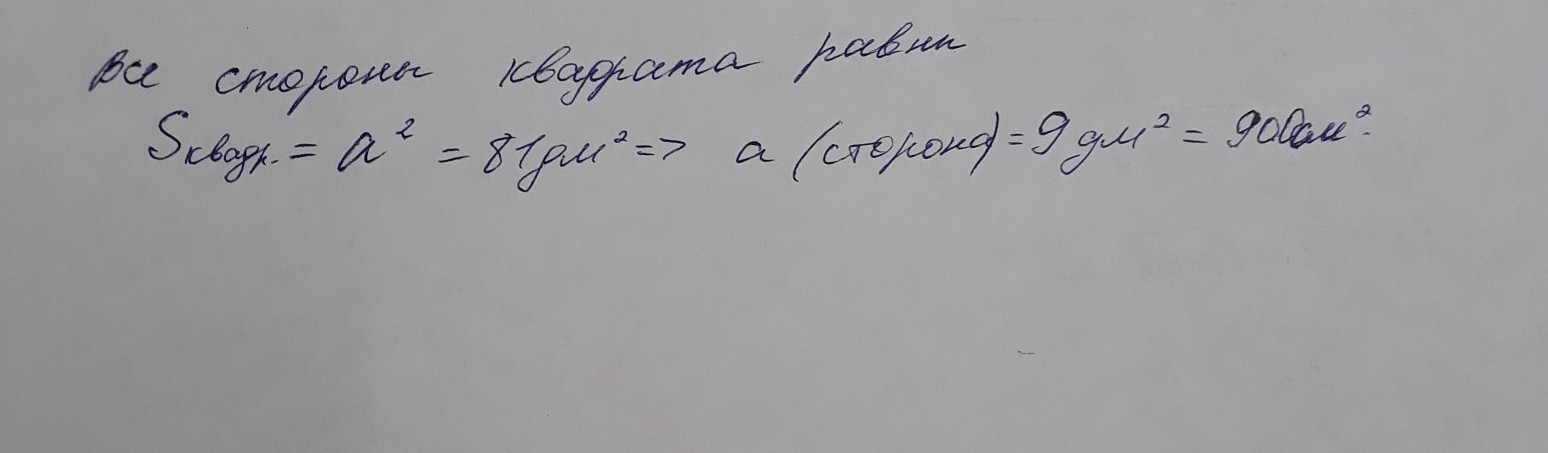 Все стороны квадрата равны
Sквадр. = a² = 81дм² => a (сторона) = 9 дм² = 900см².